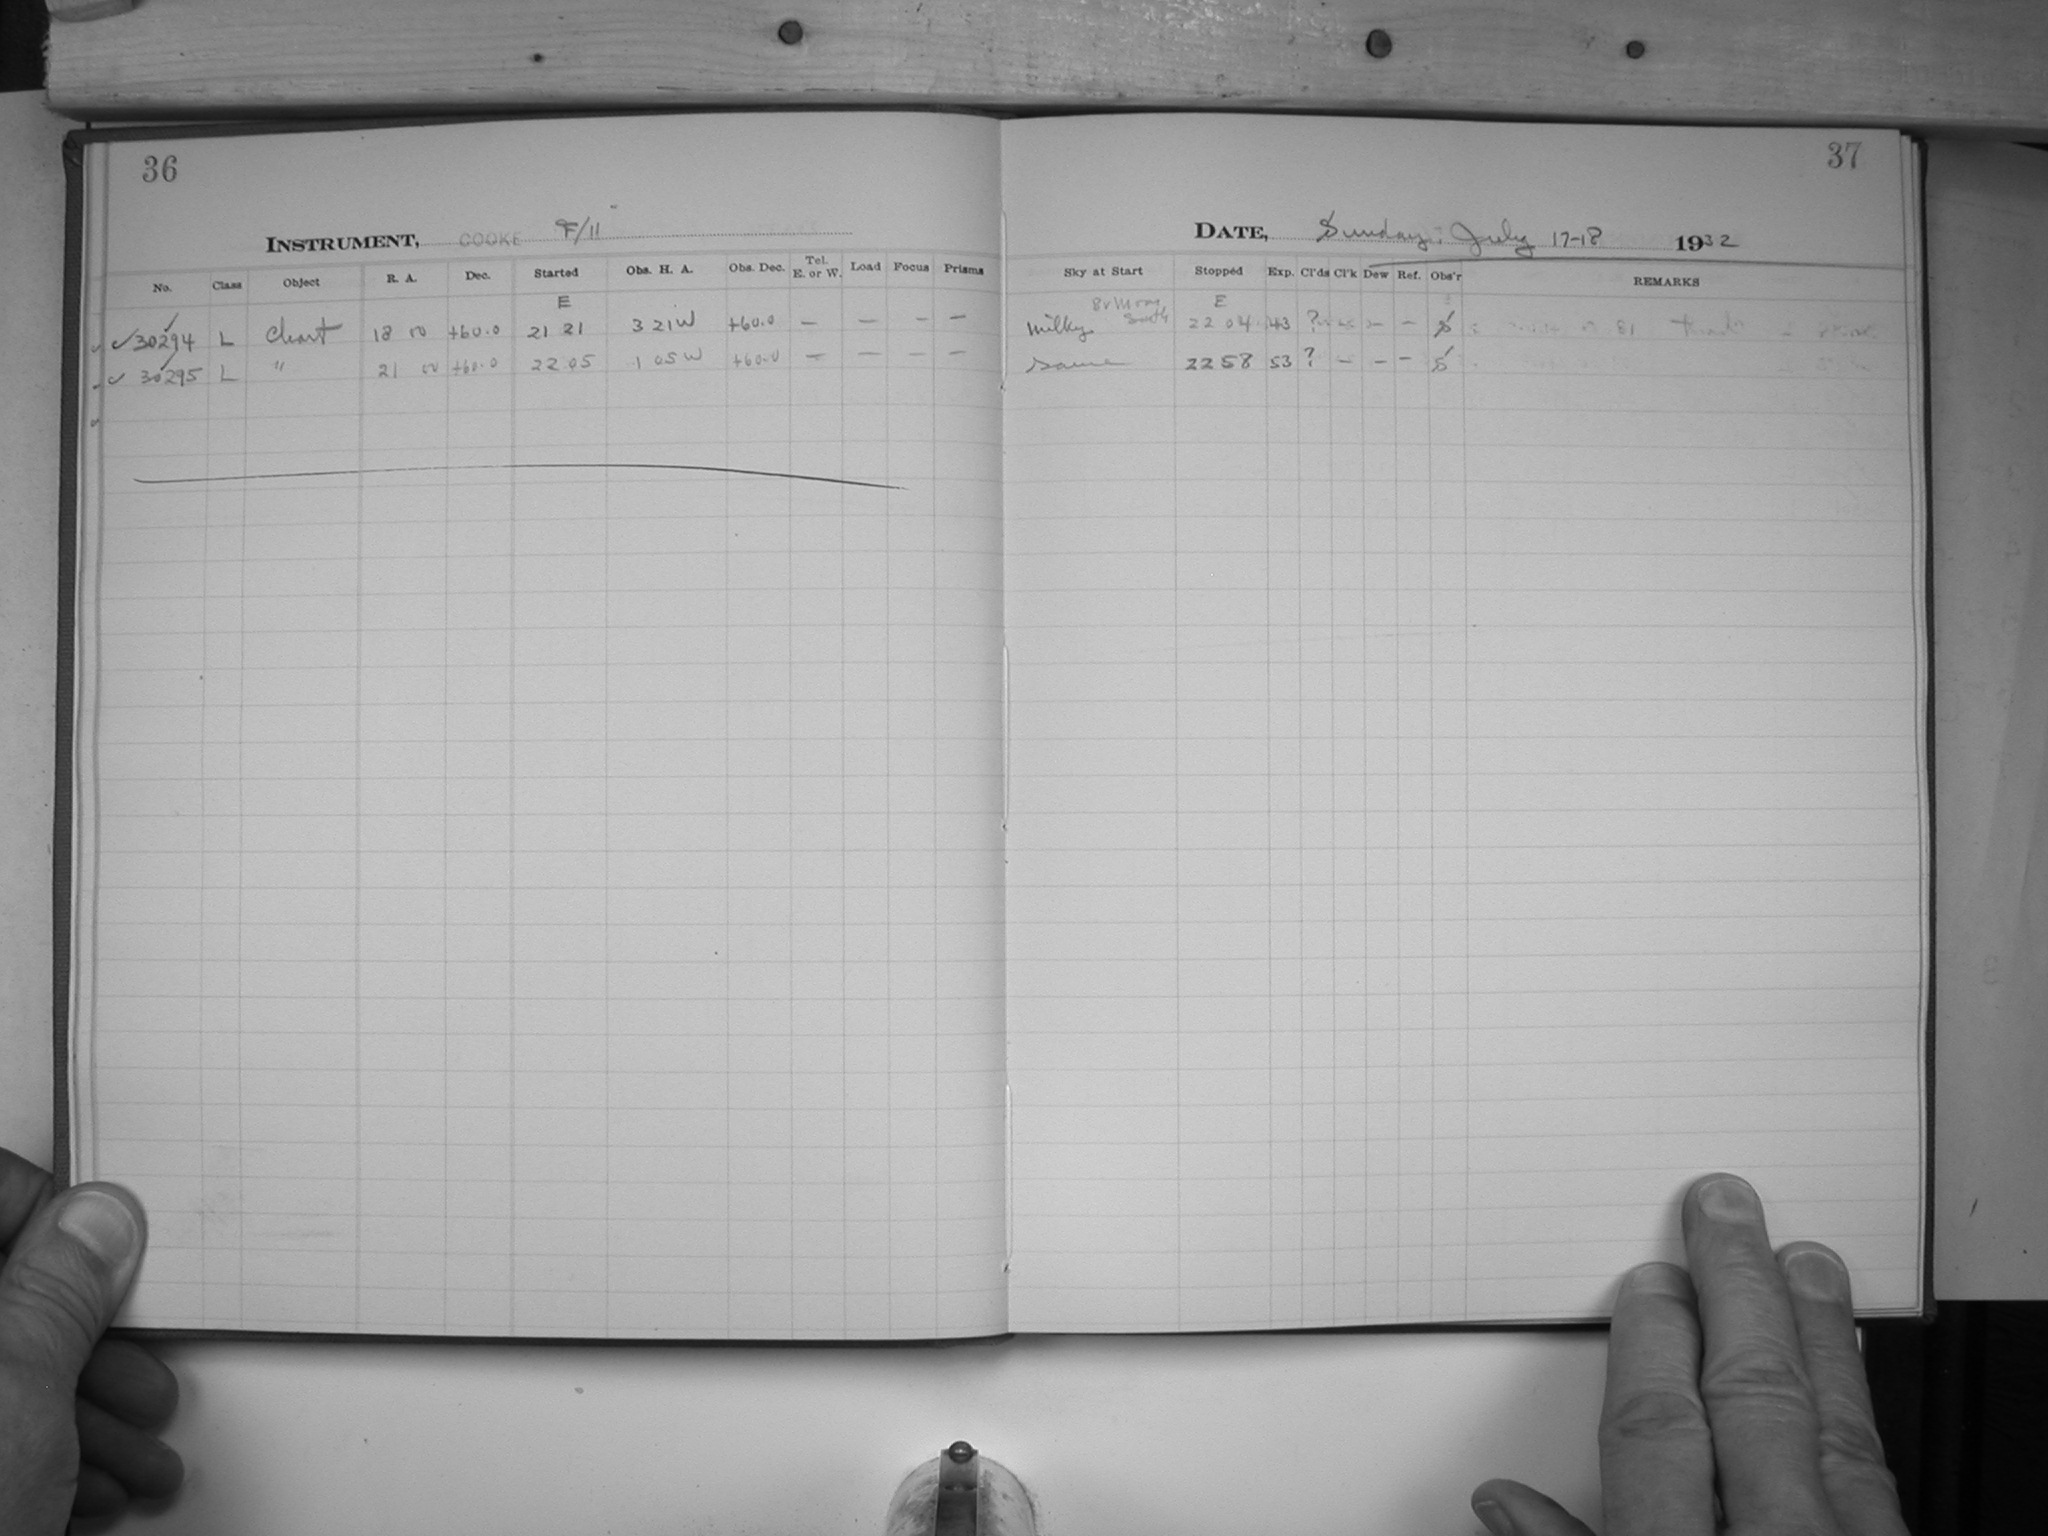 36
INSTRUMENT, COOKE F/11
No. Class Object R. A. Dec. Started Obs. H. A. Obs. Dec. Tel. E. or W. Load Focus Prisms
E
30294 L Chart 18 00 +60.0 21 21 3 21 W +60.0 — — — —
30295 L " 21 00 +60.0 22 05 1 05 W +60.0 — — — —
37
DATE, Sunday, July 17-18 1932
Sky at Start Stopped Exp. Cl'ds Cl'k Dew Ref. Obs'r REMARKS
E
Milky South 22 04 43 ? — — —
same 22 58 53 ? — — —